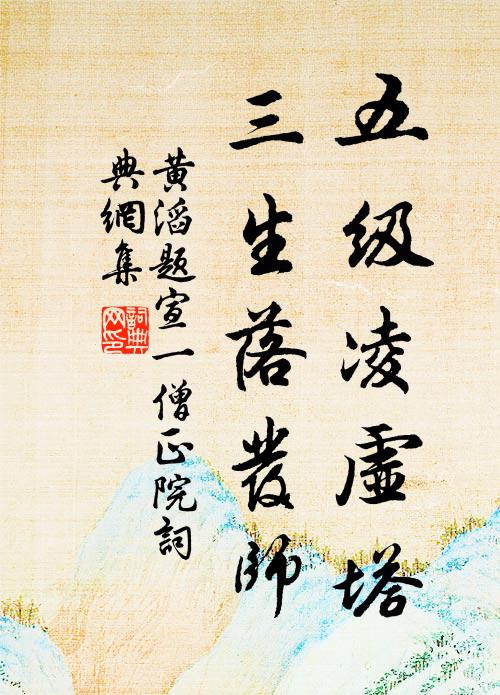 五级凌虚塔
三生落发师
黄滔题宣一僧正院词
典网集
词典
网印